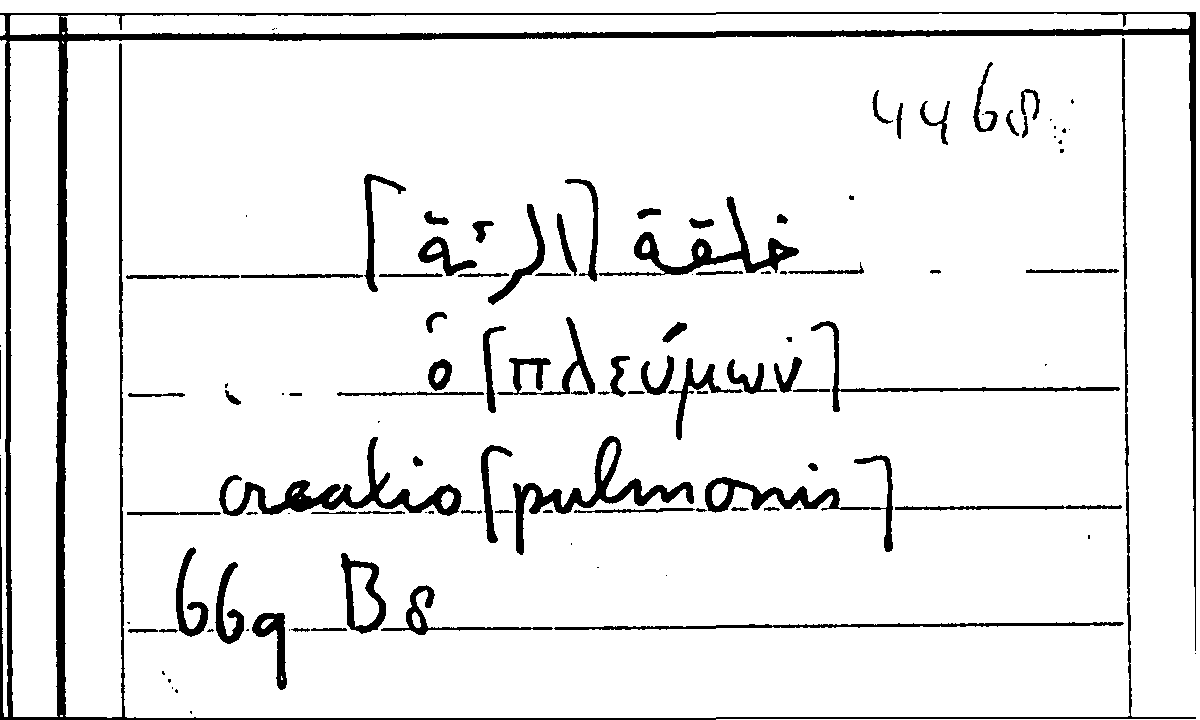 4468
خلقة [الرئة]
ὁ [πλεύμων]
creatio [pulmonis]
669 B8